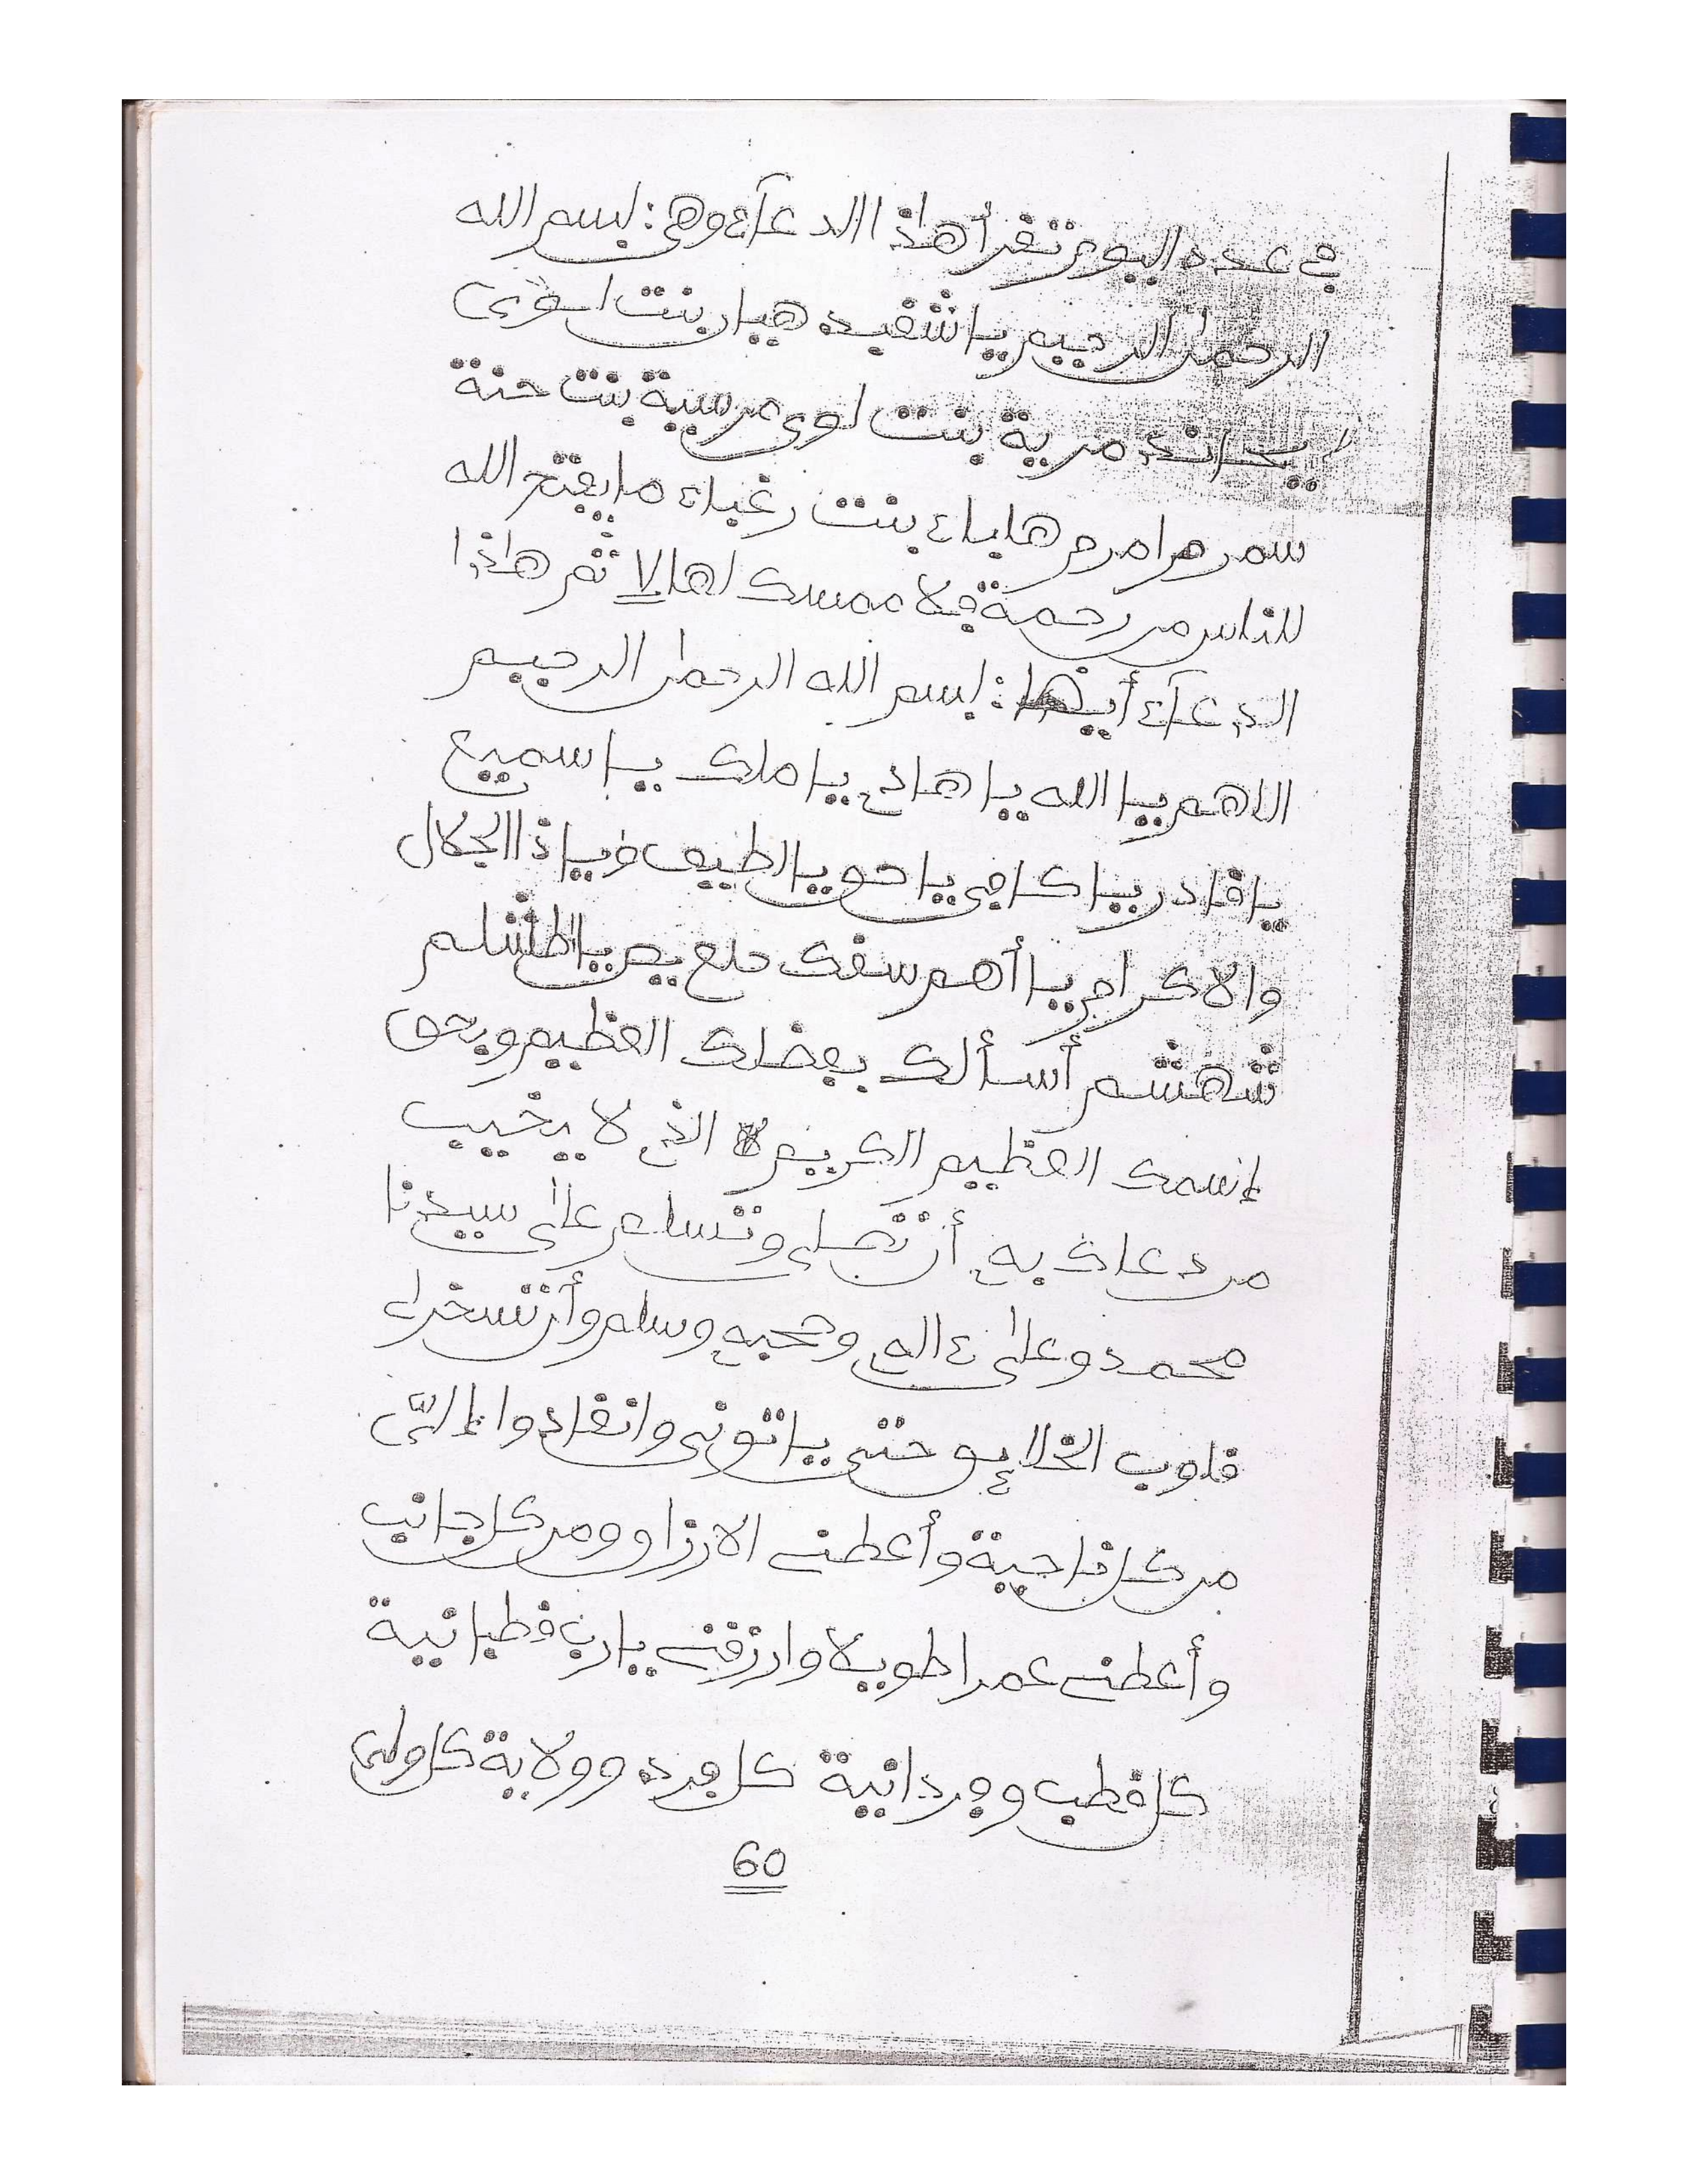 في عدد اليوم تقرأ هاذا الدعآء وهي: بسم الله
الرحمان الرحيم يا شفيد هيا بنت
مرية بنت لوي مرسية بنت حنة
هلباء بنت رغباء ما يفتح الله
للناس من رحمة فلا ممسك لها لا ثم هاذا
الدعآء أيضا: بسم الله الرحمان الرحيم
اللهم يا الله يا هادي يا ملك يا سميع
يا قادر يا كافي يا حق يا لطيف ويا ذا الجلال
والاكرام يا أهم سقك حلع يص يا
شهشم أسألك بفضلك العظيم وبحق
إسمك العظيم الكريم الذي لا يخيب
من دعاك به أن تصلي وتسلم على سيدنا
محمد وعلى ءاله وصحبه وسلم وأن تسخر لي
قلوب الخلائق حتى ياتوني وانقادوا إليّ
من كل ناحية وأعطني الارزاق ومن كل جانب
وأعطني عمرا طويلا وارزقني يا رب قطبانية
كل قطب وفردانية كل فرد وولاية كل ولي
60